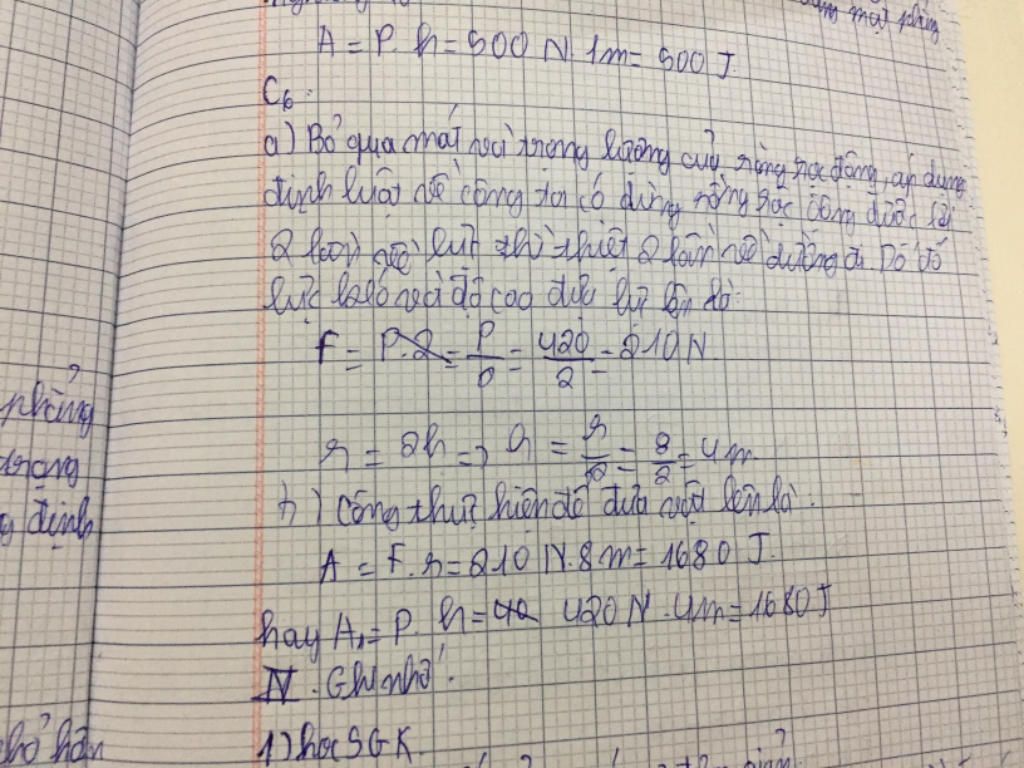 mặt phẳng
A = P. h = 500 N. 1m = 500 J.
C6.
a) Bỏ qua mát và trọng lượng của ròng rọc động, áp dụng
định luật về công ta có dùng ròng rọc động được lợi
2 lần về lực thì thiệt 2 lần về đường đi. Do đó
lực kéo và độ cao đưa lên là:
F = P.2 = P/2 = 420/2 = 210 N.
s = 2h => h = s/2 = 8/2 = 4 m
phẳng
trọng
b) Công thực hiện để đưa vật lên là:
y định
A = F. s = 210 N. 8 m = 1680 J.
hay A1 = P. h = 42 420 N. 4m = 1680 J
IV. Ghi nhớ.
1) học SGK.
hỏ hơn